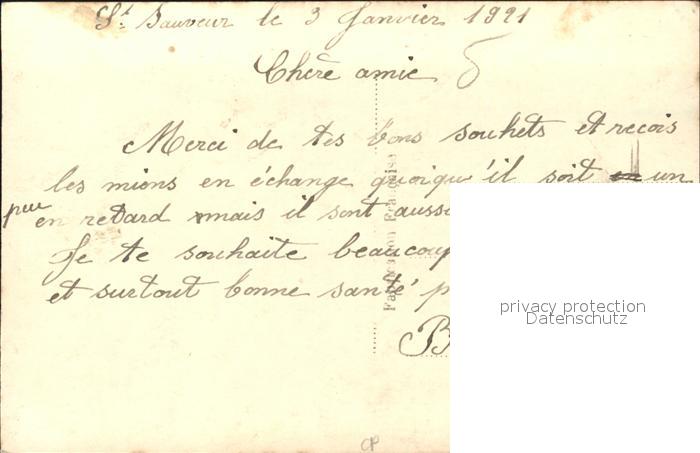 St Sauveur le 3 Janvier 1921
Chère amie
Merci de tes bons souhets et reçois
les miens en échange quoiqu'il soit un
peu en retard mais il sont aussi
Je te souhaite beaucoup
et surtout bonne santé
B
Fabrication Française
privacy protection
Datenschutz
CP